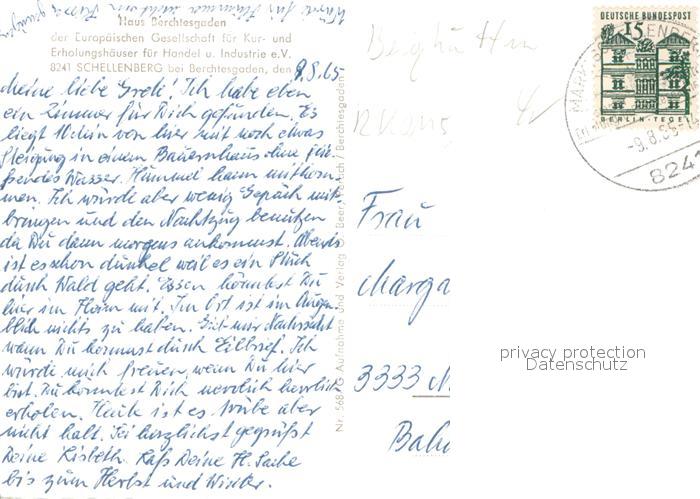 Haus Berchtesgaden
der Europäischen Gesellschaft für Kur- und
Erholungshäuser für Handel u. Industrie e.V.
8241 SCHELLENBERG bei Berchtesgaden, den 9.8.65
Meine liebe Gretl! Ich habe eben
ein Zimmer für Dich gefunden. Es
liegt 10 Min von hier mit noch etwas
Steigung in einem Bauernhaus ohne flie-
ßendes Wasser. Hummel kann mitkom-
men. Ich würde aber wenig Gepäck mit-
bringen und den Nachtzug benützen
da Du dann morgens ankommst. Abends
ist es schon dunkel weil es ein Stück
durch Wald geht. Essen könntest Du
hier im Heim mit. Im Ort ist im Augen
blick nichts zu haben. Gib mir Nachricht
wann Du kommst durch Eilbrief. Ich
würde mich freuen wenn Du hier
bist. Du könntest Dich herrlich
erholen. Heute ist es trübe aber
nicht kalt. Sei herzlichst gegrüßt
Deine Lisbeth.
bis zum Herbst und Winter.
Nr. 568/G Aufnahme und Verlag
Berchtesgaden
DEUTSCHE BUNDESPOST
15
BERLIN-TEGEL
-9.8.65
8241
Frau
Marga
3333
Bah
privacy protection
Datenschutz